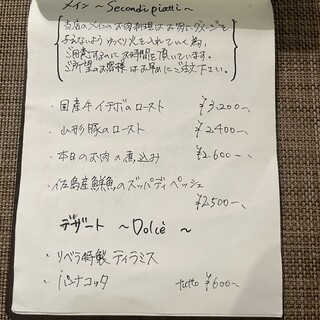 メイン ~Secondi piatti~
当店のメインのお肉料理はお肉にダメージを
与えないようゆっくり火を入れていく為、
ご用意するのにお時間を頂いています。
ご所望のお客様はお早めにご注文下さい。
・国産牛イチボのロースト ¥3,200~
・山形豚のロースト ¥2,400~
・本日のお肉の煮込み ¥2,600~
・佐島産鮮魚のズッパ ディ ペッシェ
¥2,500~
デザート ~Dolce~
・リベラ特製 ティラミス
・パンナコッタ tutto ¥600~